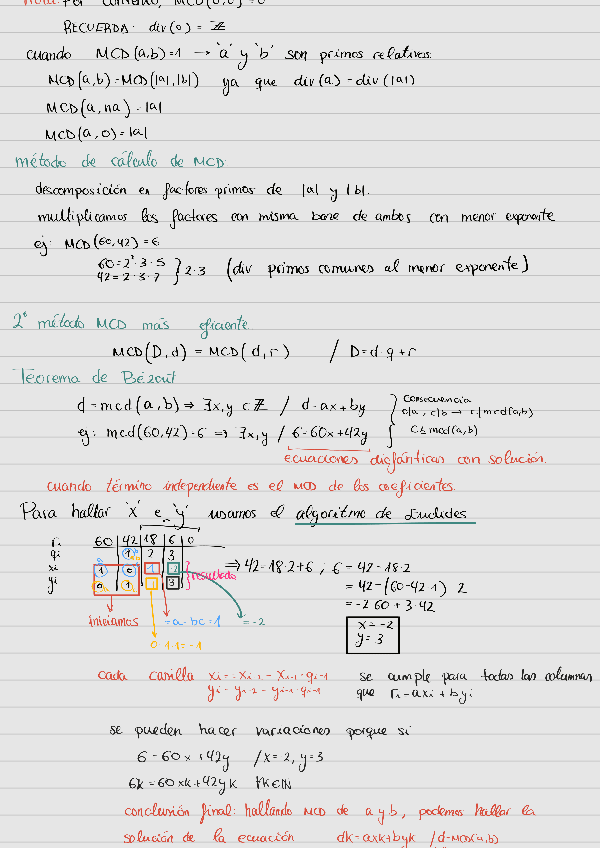 Nota: Por convenio, MCD(0,0) = 0
RECUERDA: div(0) = ℤ
cuando MCD(a,b)=1 → 'a' y 'b' son primos relativos.
MCD(a,b)=MCD(|a|,|b|) ya que div(a) = div(|a|)
MCD(a, na) = |a|
MCD(a,0)=|a|
método de cálculo de MCD:
descomposición en factores primos de |a| y |b|.
multiplicamos los factores con misma base de ambos con menor exponente
ej: MCD(60,42)=6
60=2²·3·5
42=2·3·7 } 2·3 (div primos comunes al menor exponente)
2º método MCD más eficiente.
MCD(D,d) = MCD(d,r) / D=d·q+r
Teorema de Bézout
d=mcd(a,b) ⇒ ∃x,y ∈ ℤ / d=ax+by
eg: mcd(60,42)=6 ⇒ ∃x,y / 6=60x+42y
consecuencia
c|a, c|b → c|mcd(a,b)
c≤mcd(a,b)
ecuaciones diofánticas con solución.
cuando término independiente es el MCD de los coeficientes.
Para hallar 'x' e 'y' usamos el algoritmo de Euclides
ri 60 42 18 6 0
qi 1 2 3
xi 1 0 1 -2
yi 0 1 -1 3
} resultado
⇒ 42=18·2+6 ; 6=42-18·2
= 42-(60-42·1)·2
= -2·60 + 3·42
x=-2
y=3
iniciamos
= a-bc=1
= -2
0-1·1=-1
cada casilla xi = xi-2 - xi-1·qi-1
yi = yi-2 - yi-1·qi-1
se cumple para todas las columnas
que ri=axi+byi
se pueden hacer variaciones porque si
6=60x+42y /x=2, y=3
6k=60xk+42yk ∀k∈ℕ
conclusión final: hallando MCD de a y b, podemos hallar la
solución de la ecuación dk=axk+byk /d=MCD(a,b)